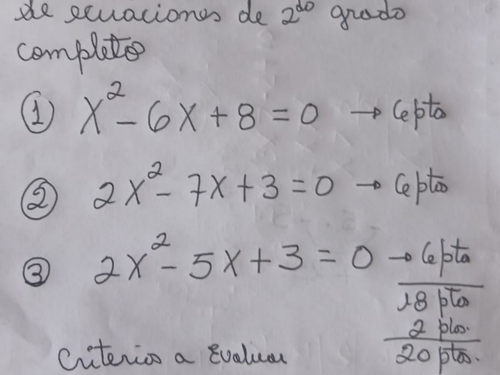 de ecuaciones de 2do grado
completos
① x² - 6x + 8 = 0 → 6 pto
② 2x² - 7x + 3 = 0 → 6 ptos
③ 2x² - 5x + 3 = 0 → 6 pto
18 ptos
2 ptos.
20 ptos.
Criterios a Evaluar